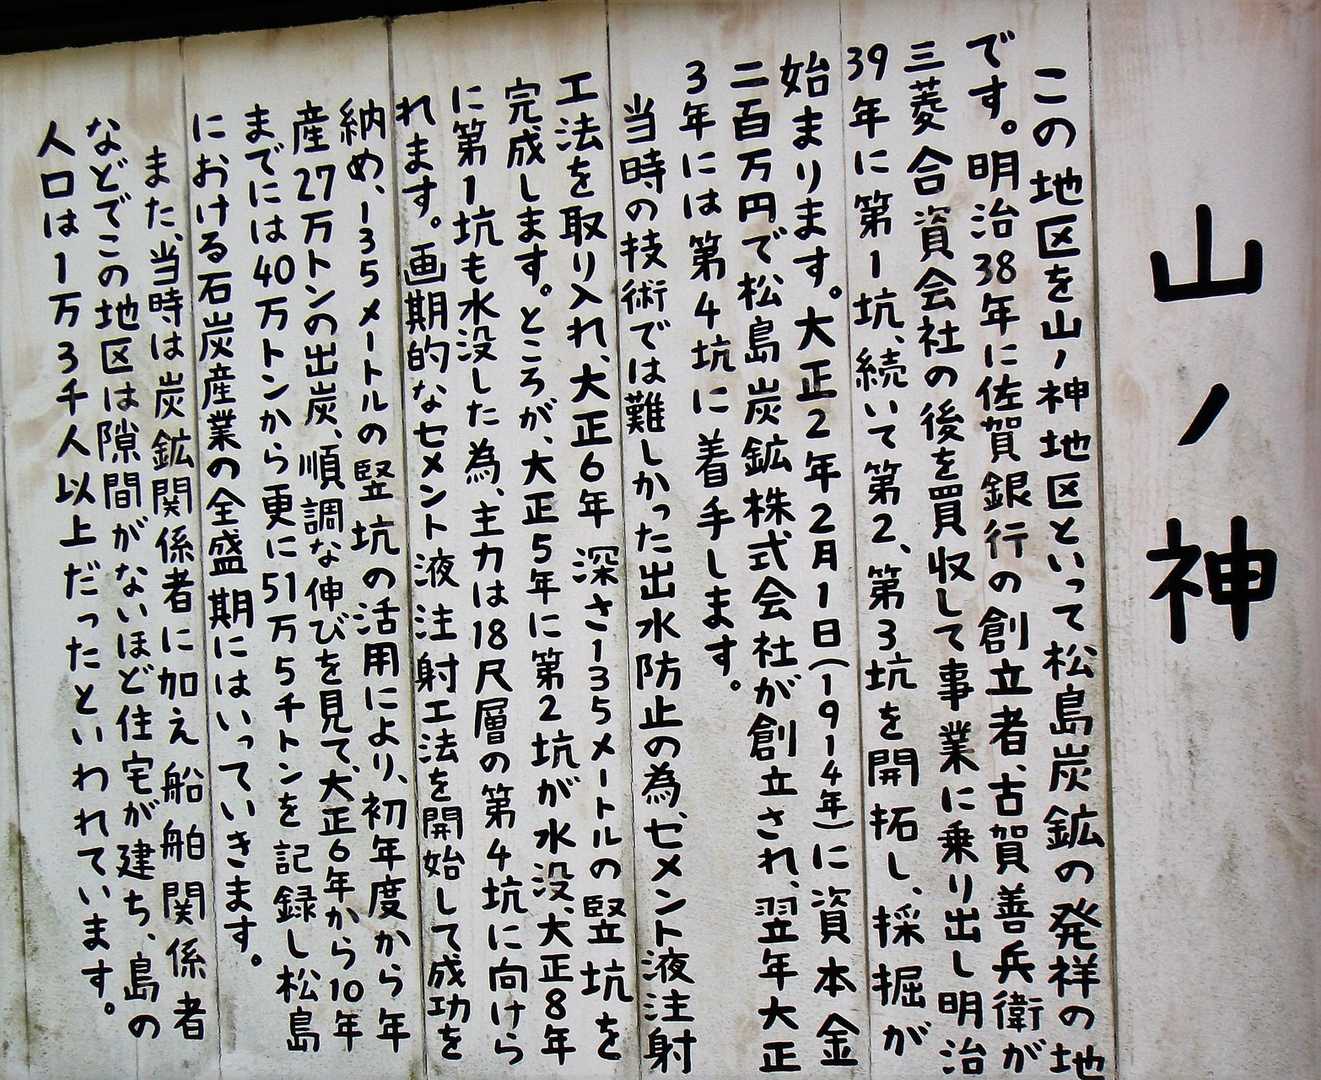 山ノ神
この地区を山ノ神地区といって松島炭鉱の発祥の地
です。明治38年に佐賀銀行の創立者、古賀善兵衛が
三菱合資会社の後を買収して事業に乗り出し明治
39年に第1坑、続いて第2、第3坑を開拓し、採掘が
始まります。大正2年2月1日(1914年)に資本金
二百万円で松島炭鉱株式会社が創立され、翌年大正
3年には第4坑に着手します。
当時の技術では難しかった出水防止の為、セメント液注射
工法を取り入れ、大正6年 深さ135メートルの竪坑を
完成します。ところが、大正5年に第2坑が水没、大正8年
に第1坑も水没した為、主力は18尺層の第4坑に向けら
れます。画期的なセメント液注射工法を開始して成功を
納め、135メートルの竪坑の活用により、初年度から年
産27万トンの出炭、順調な伸びを見て、大正6年から10年
までには40万トンから更に51万5千トンを記録し松島
における石炭産業の全盛期にはいっていきます。
また、当時は炭鉱関係者に加え船舶関係者
などでこの地区は隙間がないほど住宅が建ち、島の
人口は1万3千人以上だったといわれています。